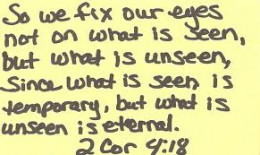 So we fix our eyes
not on what is seen,
but what is unseen,
Since what is seen is
temporary, but what is
unseen is eternal.
2 Cor 4:18